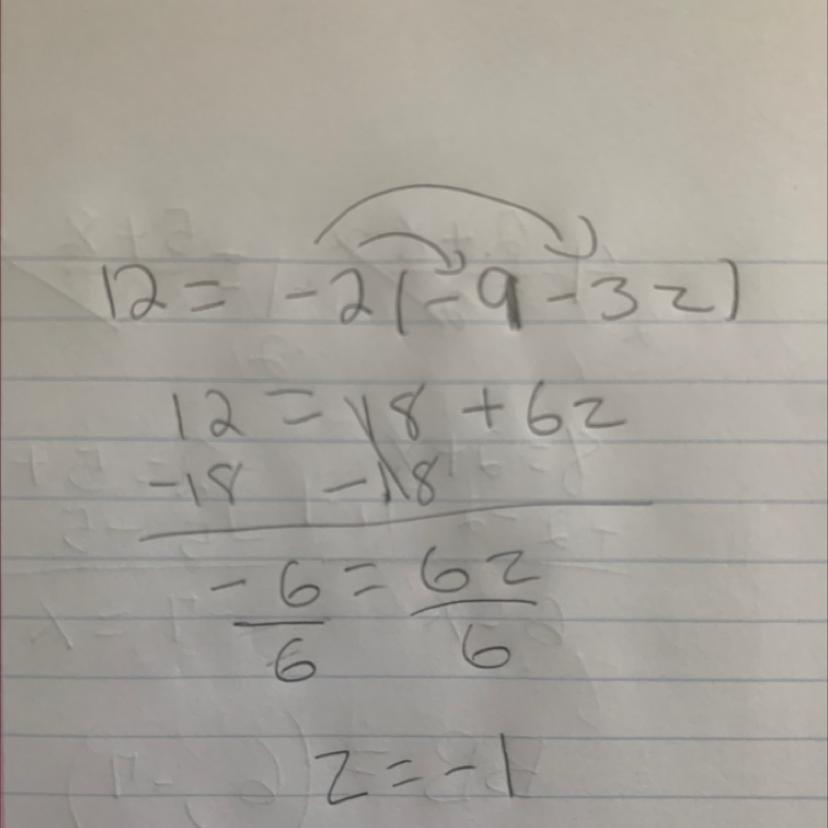 12 = -2(-9-3z)
12 = 18 + 6z
-18 -18
-6 = 6z
6 6
z = -1